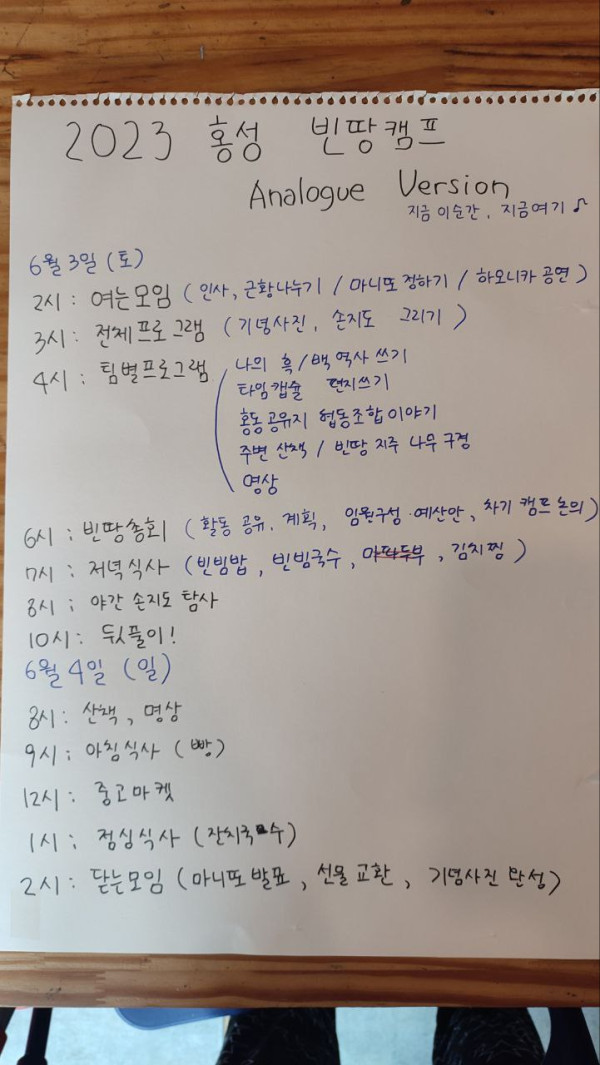 2023 홍성 빈땅캠프
Analogue Version
지금 이순간, 지금여기 ♪
6월 3일 (토)
2시: 여는모임 (인사, 근황나누기 / 마니또 정하기 / 하모니카 공연)
3시: 전체프로그램 (기념사진, 손지도 그리기)
4시: 팀별프로그램
나의 흑/백 역사 쓰기
타임캡슐 편지쓰기
홍동 공유지 협동조합 이야기
주변 산책 / 빈땅 지주 나무 구경
명상
6시: 빈땅총회 (활동 공유, 계획, 임원구성·예산안, 차기 캠프 논의)
7시: 저녁식사 (빈빔밥, 빈빔국수, 마파두부, 김치찜)
8시: 야간 손지도 탐사
10시: 뒷풀이!
6월 4일 (일)
8시: 산책, 명상
9시: 아침식사 (빵)
12시: 중고마켓
1시: 점심식사 (잔치국수)
2시: 닫는모임 (마니또 발표, 선물 교환, 기념사진 완성)